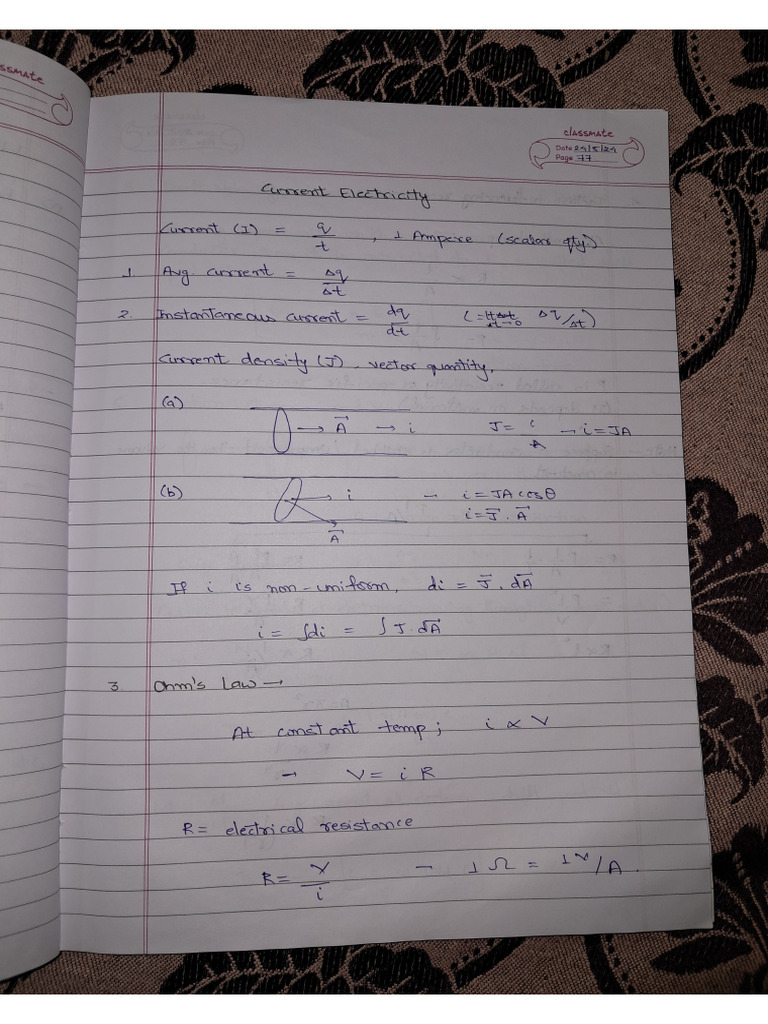 ssmate
classmate
Date 24/5/24
Page 77
Current Electricity
Current (I) = q/t , 1 Ampere (scalar qty.)
1. Avg. current = Δq/Δt
2. Instantaneous current = dq/dt (= lt Δt→0 Δq/Δt)
Current density (J) - vector quantity.
(a) → A⃗ → i J = i/A → i = JA
(b) → i → i = JA cos θ
i = J⃗ . A⃗
A⃗
If i is non-uniform, di = J⃗ . dA⃗
i = ∫di = ∫ J . dA⃗
3. Ohm's Law →
At constant temp; i ∝ V
→ V = i R
R = electrical resistance
R = V/i → 1 Ω = 1 V/A .